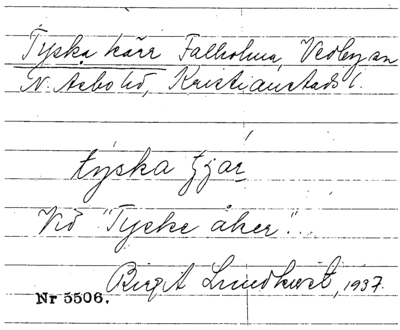 Tyska kärr Falholma, Vedby sn
N. Åsbo hd, Kristianstads l.
týska tjär
Vid "Tyske åker"...
Birgit Lundkvist, 1937.
Nr 5506.